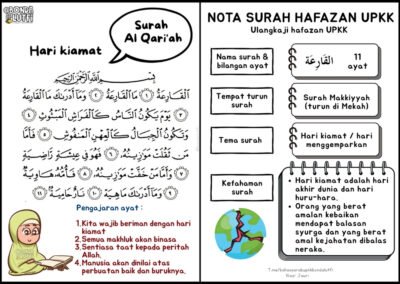 BORNEO
BLUFFI
Surah
Al Qari'ah
Hari kiamat
بِسْمِ اللَّهِ الرَّحْمَٰنِ الرَّحِيمِ
الْقَارِعَةُ ۝١ مَا الْقَارِعَةُ ۝٢ وَمَا أَدْرَىٰكَ مَا الْقَارِعَةُ
۝٣ يَوْمَ يَكُونُ النَّاسُ كَالْفَرَاشِ الْمَبْثُوثِ ۝٤
وَتَكُونُ الْجِبَالُ كَالْعِهْنِ الْمَنْفُوشِ ۝٥ فَأَمَّا
مَنْ ثَقُلَتْ مَوَازِينُهُ ۝٦ فَهُوَ فِي عِيشَةٍ رَاضِيَةٍ
۝٧ وَأَمَّا مَنْ خَفَّتْ مَوَازِينُهُ ۝٨ فَأُمُّهُ هَاوِيَةٌ
۝٩ وَمَا أَدْرَىٰكَ مَا هِيَهْ ۝١٠ نَارٌ حَامِيَةٌ ۝١١
Pengajaran ayat :
1.Kita wajib beriman dengan hari
kiamat
2.Semua makhluk akan binasa
3.Sentiasa taat kepada peritah
Allah.
4.Manusia akan dinilai atas
perbuatan baik dan buruknya.
NOTA SURAH HAFAZAN UPKK
Ulangkaji hafazan
UPKK
Nama surah &
bilangan ayat
القَارِعَة
11
ayat
Tempat turun
surah
Surah Makkiyyah
(turun di Mekah)
Tema surah
Hari kiamat / hari
menggemparkan
Kefahaman
surah
• Hari kiamat adalah hari
akhir dunia dan hari
huru-hara.
• Orang yang berat
amalan kebaikan
mendapat balasan
syurga dan yang berat
amal kejahatan dibalas
neraka.